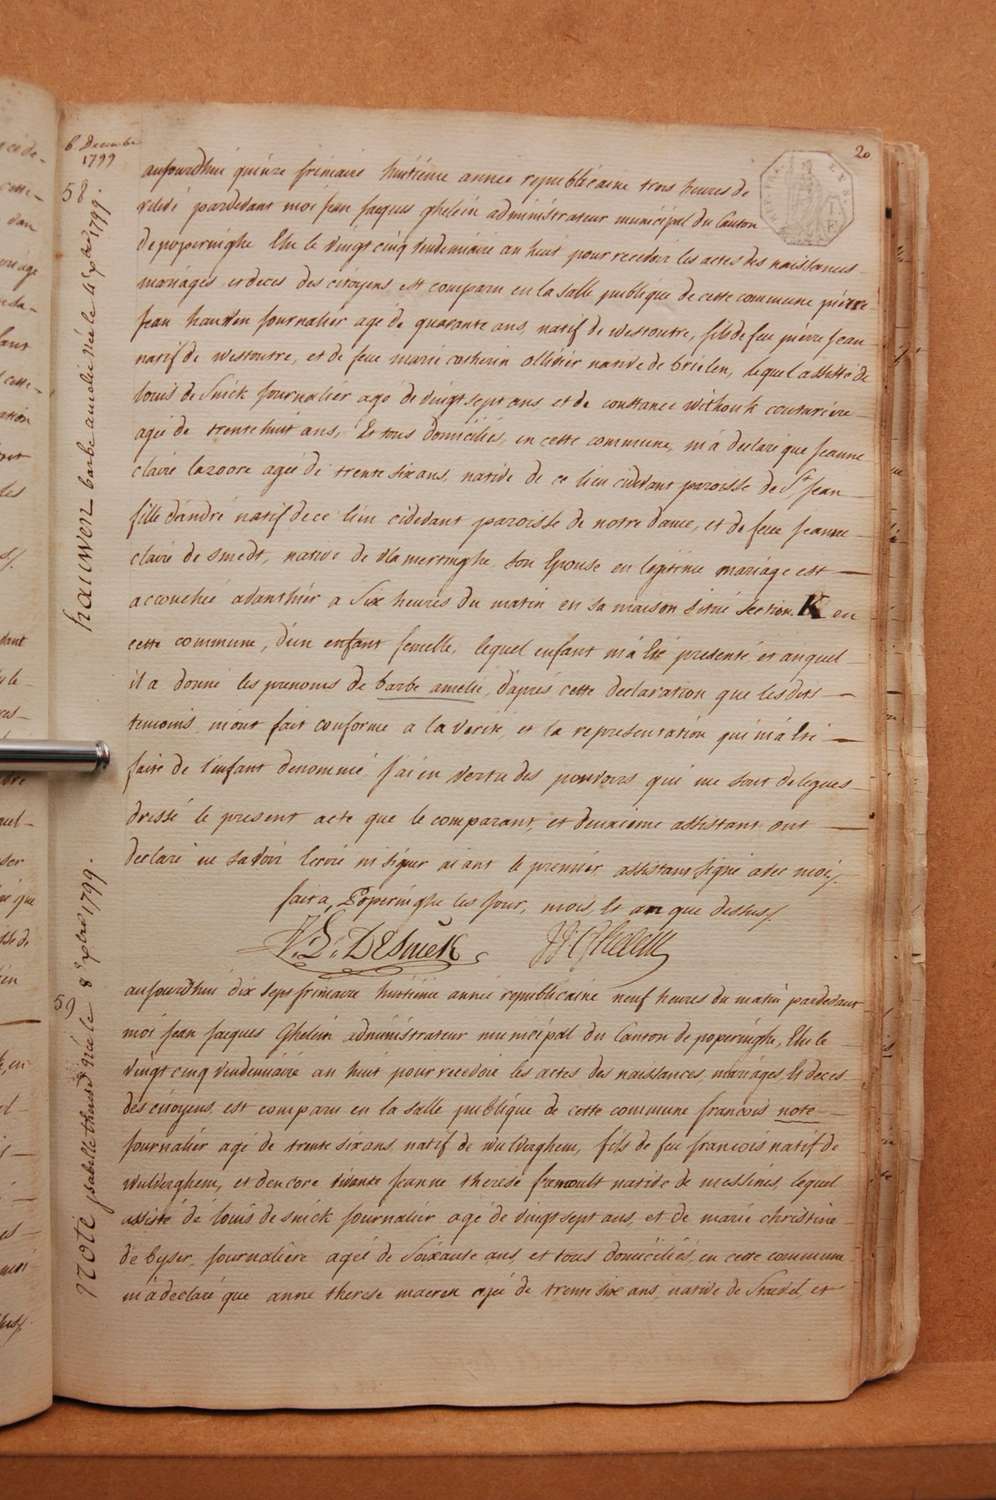 20
6 Decembre
1799
58.
hauwen barbe amelie née le 4 Xbre 1799
aujourdhui quinze frimaire huitiéme année republicaine trois heures de
relévé pardedant moi jean jacques Ghelein administrateur municipal du Canton
de poperinghe Elu le vingt cinq vendemiaire an huit pour recevoir les actes des naissances
mariages et deces des citoyens est comparu en la salle publique de cette commune piérre
jean hauwen journaliér agé de quarante ans, natif de westoutre, fils de feu piérre jean
natif de westoutre, et de feue marie catherin olliviér native de brielen, lequel assisté de
louis de Snick journaliér agé de vingt sept ans et de constance withouk couturiére
agée de trente huit ans, Et tous domiciliés, en cette commune, m'a declaré que jeanne
claire lazoore agée de trente six ans, native de ce lieu cidevant paroisse de St jean
fille d'andré natif de ce lieu cidevant paroisse de notre dame, et de feue jeanne
claire de smedt, native de vlamertinghe son Epouse en legitime mariage est
accouchée avanthiér a Six heures du matin en sa maison Située Section K en
cette commune, d'un enfant femelle, lequel enfant m'a Eté presenté et auquel
il a donné les prenoms de barbe amelie, d'aprés cette declaration que lesdits
temoins m'ont fait conforme a la verité, et la representation qui m'a Eté
faite de l'enfant denommé J'ai en vertu des pouvoirs qui me sont delegues
dressé le present acte que le comparant, et deuxiéme assistant ont
declaré ne savoir Ecrire ni signer aiant le premiér assistant signé avec moi,
fait a Poperinghe les jour, mois, Et an que dessus
V. L. DeSnick JJGhelein
59
noté isabelle therese née le 8 Xbre 1799.
aujourdhui dix sept frimaire huitiéme année republicaine neuf heures du matin pardevant
moi jean jacques Ghelein administrateur municipal du Canton de poperinghe, Elu le
vingt cinq vendemiaire an huit pour recevoir les actes des naissances, mariages, Et deces
des citoyens est comparu en la salle publique de cette commune francois note
journaliér agé de trente six ans natif de wulveghem, fils de feu francois natif de
wulverghem, et d'encore vivante jeanne therese framoult native de messines lequel
assisté de louis de snick journalier agé de vingt sept ans, et de marie christine
de byser journaliére agée de soixante ans, et tous domiciliés, en cette commune
m'a declaré que anne therese maeren agée de trente six ans, native de Staedel, et